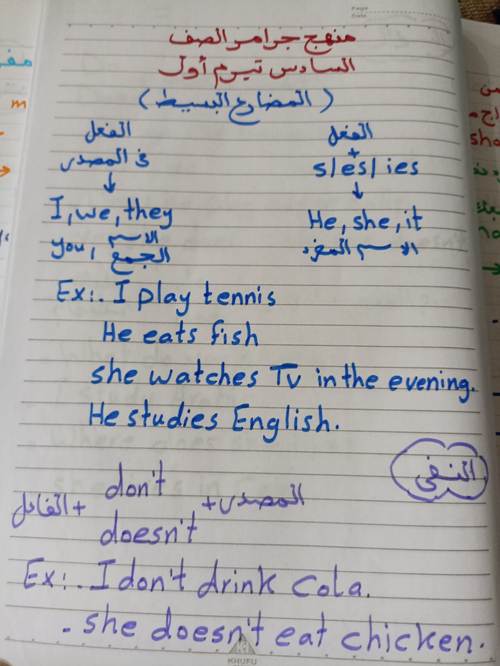 Page
Date
منهج جرامر الصف
السادس تيرم أول
( المضارع البسيط )
الفعل
+
s/es/ies
↓
He, she, it
الاسم المفرد
الفعل
فى المصدر
↓
I, we, they
you, الاسم الجمع
Ex:. I play tennis
He eats fish
she watches Tv in the evening.
He studies English.
النفى
المصدر + don't doesn't + الفاعل
Ex:. I don't drink cola.
- she doesn't eat chicken.
KHUFU